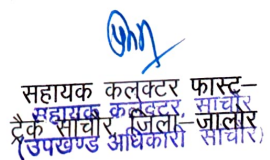 सहायक कलेक्टर फास्ट–
सहायक कलेक्टर सांचौर
ट्रैक सांचौर, जिला–जालोर
(उपखण्ड अधिकारी सांचौर)